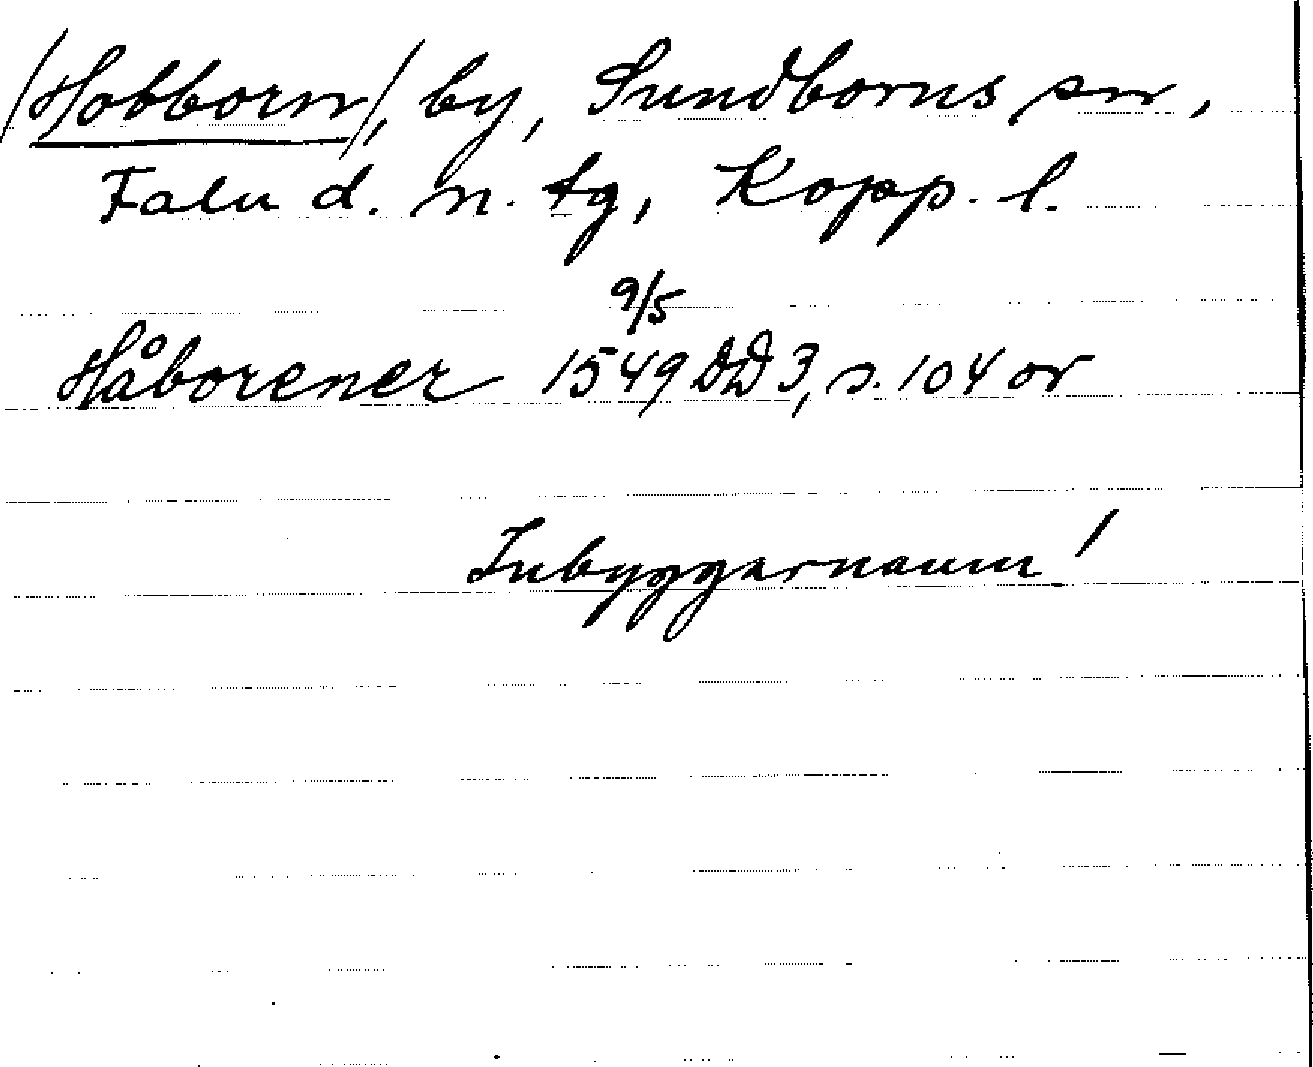 /Hobborn/, by, Sundborns sn,
Falu d. n. tg, Kopp. l.
9/5
Håborener 1549 DD 3, s. 104 or
Inbyggarnamn!